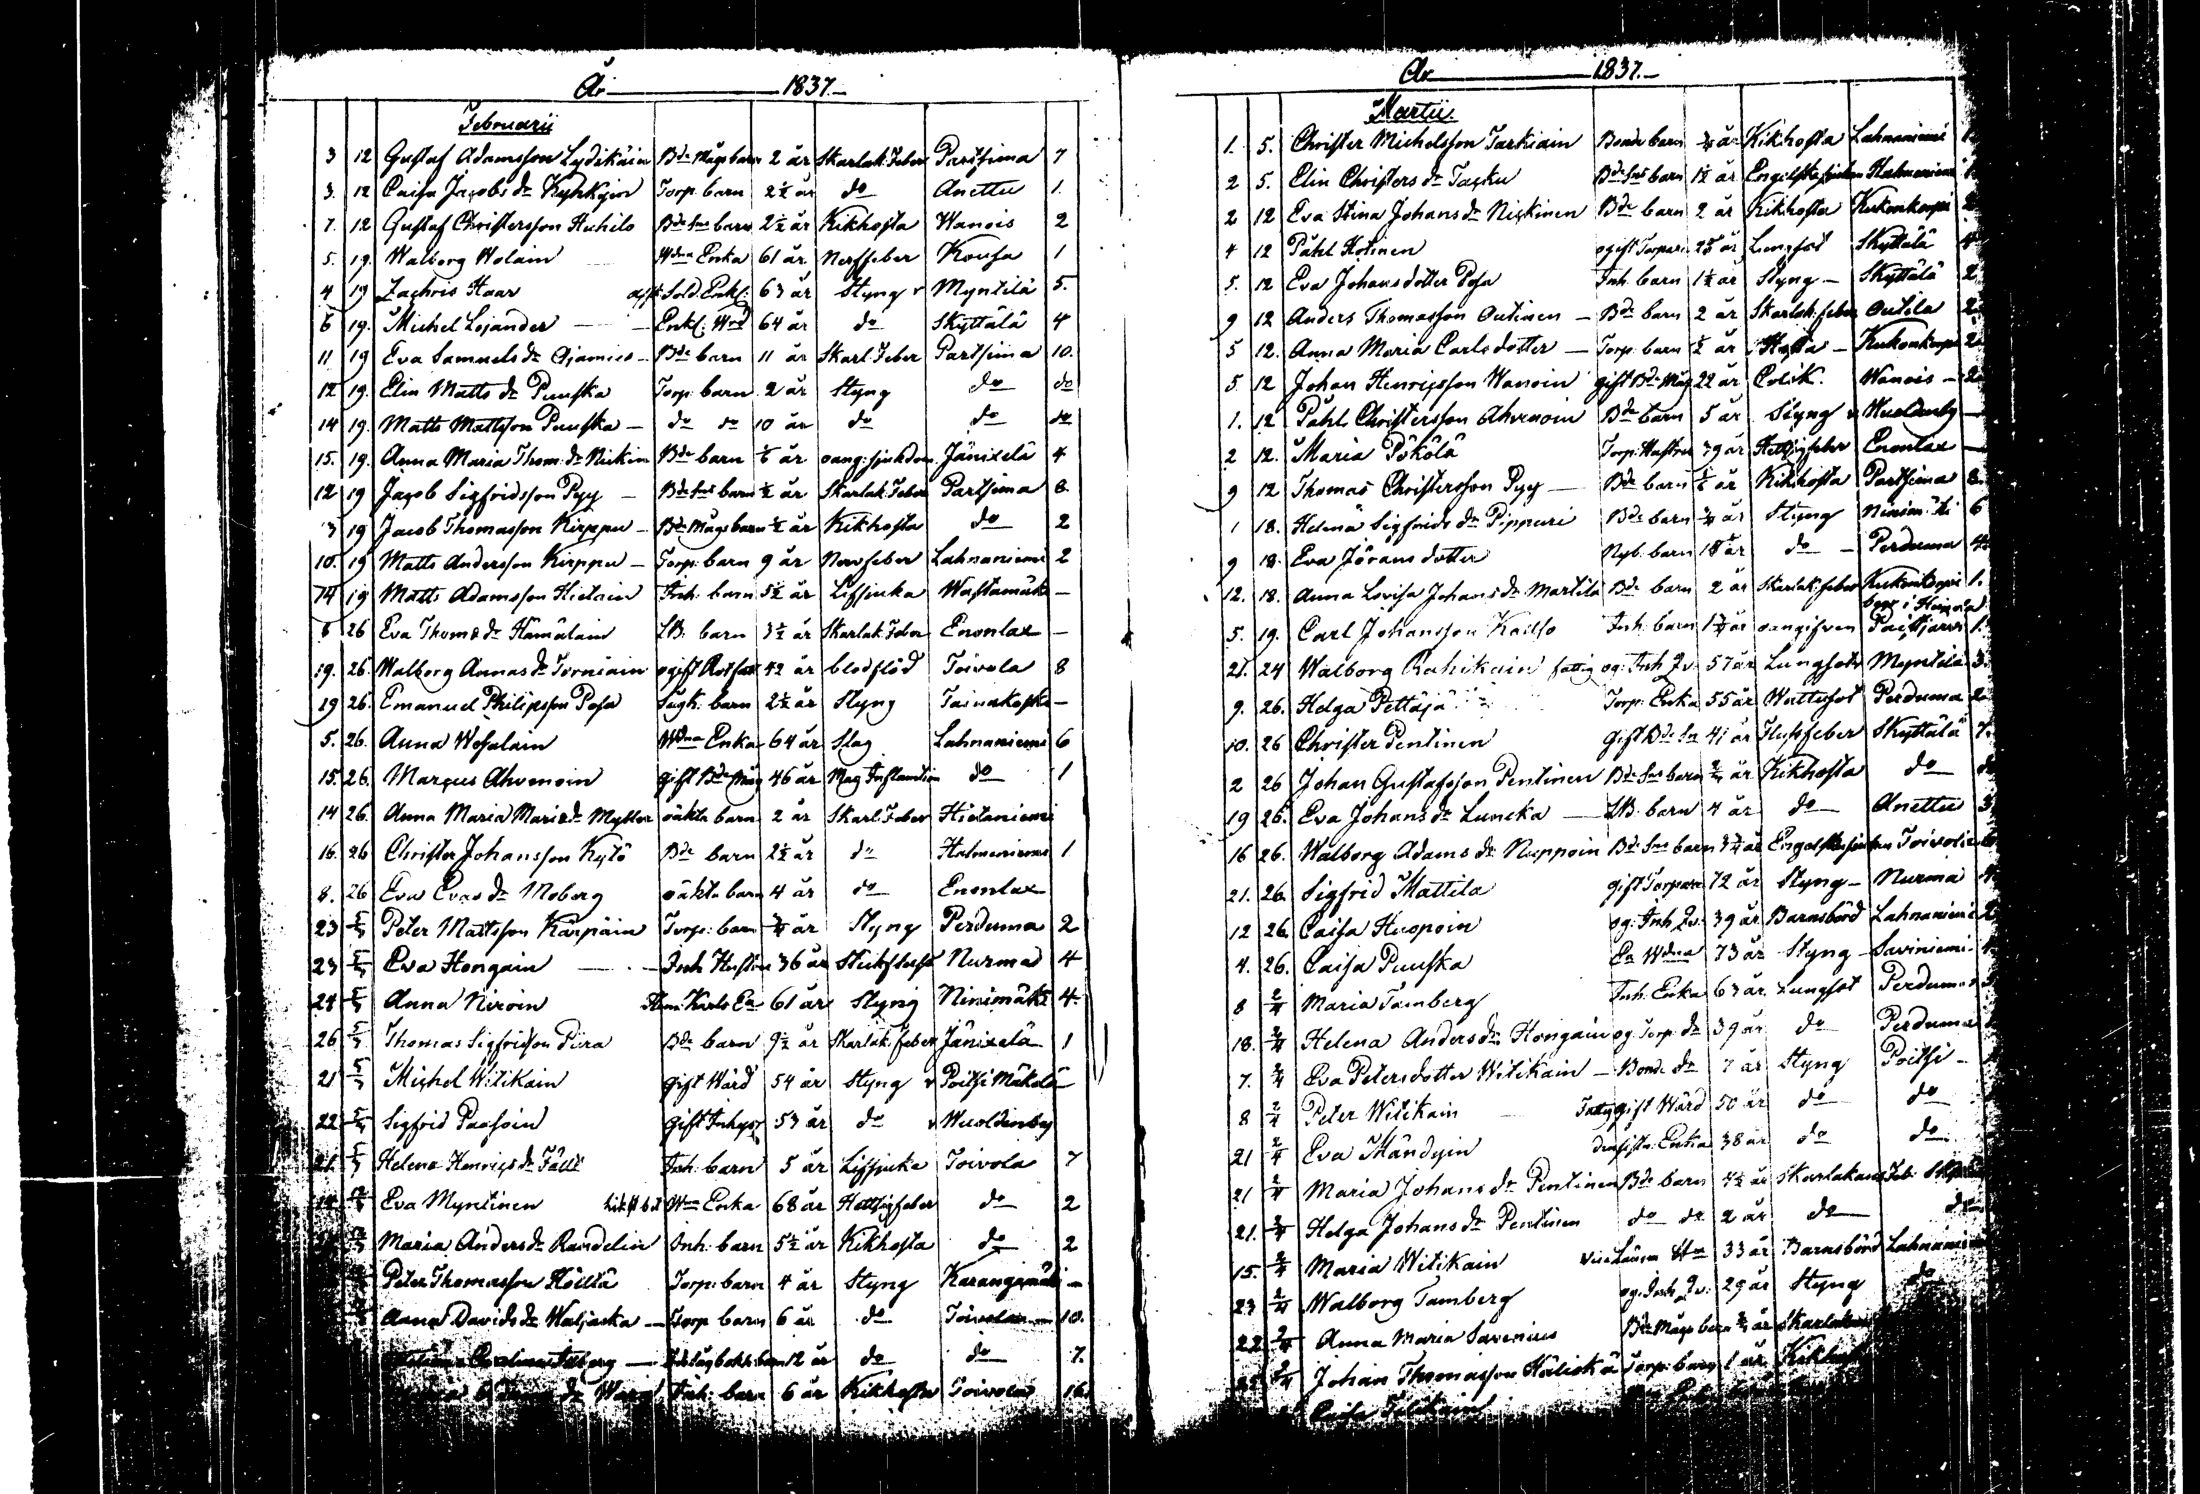 År 1837.
Februarii
3 12 Gustaf Adamsson Lydikäin Bde Mågs barn 2 år Skarlak. Feber Partsima 7
3. 12 Caisa Jacobs dr Kyhkyin Torp. barn 2½ år do Anettu 1.
7. 12 Gustaf Christersson Huhilo Bde Sns barn 2½ år Kikhosta Wanois 2
5. 19. Walborg Wolain Wdna Enka 61 år Nerffeber Kousa 1
4 19 Zachris Haar afsk. Sold. Enkl. 63 år Styng Myntilä 5.
6 19. Michel Lojander Enkl. Wrd 64 år do Skyttälä 4
11 19 Eva Samuels dr Bde barn 11 år Skarl. Feber Partsima 10.
12 19. Elin Matts dr Puuska Torp. barn 2 år Styng do do
14 19. Matts Mattsson Puuska do do 10 år do do do
15. 19. Anna Maria Thom. dr Nickin Bde barn år oang. sjukdom Jänixelä 4
12 19 Jacob Sigfridsson Pyy Bde Sns barn ½ år Skarlak. Feber Partsima 8.
3 19 Jacob Thomasson Kirppu Bde Mågs barn ½ år Kikhosta do 2
10. 19 Matts Andersson Kirppu Torp. barn 9 år Nervfeber Lahnaniemi 2
14 19 Matts Adamsson Hietain Inh. barn 5½ år Lifsjuka Wastamäki
6 26 Eva Thoms dr Hämäläin LB. barn 3½ år Skarlak. Feber Enonlax
19. 26. Walborg Annas dr Torniain ogift 42 år blodflöd Toivola 8
19 26. Emanuel Philipsson Posa barn 2½ år Styng Tainakoski
5. 26. Anna Wesalain Wdna Enka 64 år Slag Lahnaniemi 6
15. 26. Marcus Ahvenoin gift Bde Måg 46 år Mag Inflamtion do 1
14 26. Anna Maria Marie dr oäkta barn 2 år Skarl. Feber Hietaniemi
16. 26 Christer Johansson Kytö Bde barn 2½ år do Halmeniemi 1
8. 26 Eva Evas dr Moberg oäkta barn 4 år do Enonlax
23 5/3 Peter Mattsson Karpäin Torp. barn ¾ år Styng Perduma 2
23 5/3 Eva Hongain Inh Hustru 36 år Nurmad 4
24 5/3 Anna Niroin Ea 61 år Styng Ninimäki 4
26 5/3 Thomas Sigfridsson Piira Bde barn 9½ år Skarlak. feber Jänixelä 1
21 5/3 Michel Witikain gift Wärd 54 år Styng Poitsi Mäkelä
22 5/3 Sigfrid Paasoin Gift Inhys 53 år do Wuoldenby
21. 5/3 Helena Henrics dr Fält Inh. barn 5 år Lifsjuka Toivola 7
Eva Myntinen Wna Enka 68 år Hettsigfeber do 2
Maria Anders dr Randelin Inh. barn 5½ år Kikhosta do 2
Peter Thomasson Hölttä Torp. barn 4 år Styng Karangamäki
Anna Davids dr Waljacka Torp barn 6 år do Toivola 10.
Carolina 12 år do do 7.
dr Inh. barn 6 år Kikhosta Toivola 16.
År 1837.
Martii
1. 5. Christer Michelsson Tarkiain Bonde barn ¾ år Kikhosta Lahnaniemi 1.
2 5. Elin Christers dr Tasku Bde Sns barn 1½ år Engelska sjukan Halmeniemi 1.
2 12 Eva Stina Johans dr Nickinen Bde barn 2 år Kikhosta Kukonkorpi 2
4 12 Påhl Hotinen ogift Torpare 25 år Lungsot Skyttälä 4
5. 12 Eva Johansdotter Posa Inh. barn 1½ år Styng Skyttälä 2
9 12 Anders Thomasson Outinen Bde barn 2 år Skarlak. feber Outila 2.
5 12. Anna Maria Carlsdotter Torp. barn ½ år Hosta Kukonkorpi 2
5. 12 Johan Henricsson Wanoin gift Bde Måg 22 år Colik. Wanois 2
1. 12 Påhl Christersson Ahvenoin Bde barn 5 år Styng Wuoldenby
2 12. Maria Pökölä Torp. Hustru 39 år Hettsigfeber Enonlax
9 12 Thomas Christersson Pyy Bde barn år Kikhosta Partsima 8.
1 18. Helena Sigfrids dr Pippuri Bde barn ¾ år Styng Ninimäki 6
9 18. Eva Jöransdotter Nyb. barn år do Perduma 4
12. 18. Anna Lovisa Johans dr Martila Bde barn 2 år Skarlak. feber Kukonkorpi 1.
5. 19. Carl Johansson Kailio Inh. barn 1¾ år oangifven Paistjärvi 1.
21. 24 Walborg Rahikain fattig og. Inh Qv. 57 år Lungsot Myntilä 3.
9. 26. Helga Pettäjä Torp. Enka 55 år Wattusot Perduma 2
10. 26 Christer Pentinen Gift Bde Sn 41 år feber Skyttälä 7.
2 26 Johan Gustafsson Pentinen Bde Sns barn år Kikhosta do
19 26. Eva Johans dr Luncka LB. barn 4 år do Anettu 3
16 26. Walborg Adams dr Nuppoin Bde Sns barn 3¾ år Engelska sjukan Toivola 6
21. 26. Sigfrid Mattila gift Torpare 72 år Styng Nurma
12 26. Caisa Huopoin og. Inh. Qv. 39 år Barnsbörd Lahnaniemi 2
4. 26. Caisa Puuska Ea Wdna 73 år Styng Saviniemi
8 2/4 Maria Tamberg Inh. Enka 63 år Lungsot Perduma
18. 2/4 Helena Anders dr Hongain og Torp. dr 39 år do Perduma
7. 2/4 Eva Petersdotter Witikain Bonde dr 7 år Styng Poitsi
8 2/4 Peter Witikain Fattig gift Wärd 50 år do do
21 2/4 Eva Mändyin Enka 38 år do do
21 2/4 Maria Johans dr Pentinen Bde barn 4½ år Skarlakans Feb.
21. 2/4 Helga Johans dr Pentinen do do 2 år do do
15. 2/4 Maria Witikain 33 år Barnsbörd Lahnaniemi
23 2/4 Walborg Tamberg og. Inh. Qv. 29 år Styng do
22 2/4 Anna Maria Savenius Bde Mågs barn ¾ år
2/4 Johan Thomasson Torp. barn 1 år
Caisa